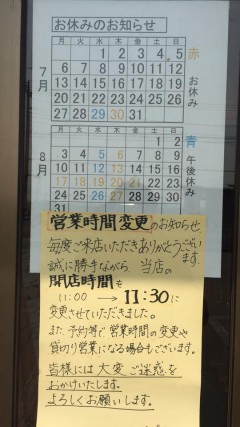 お休みのお知らせ
月 火 水 木 金 土 日
1 2 3 4 5
6 7 8 9 10 11 12
13 14 15 16 17 18 19
20 21 22 23 24 25 26
27 28 29 30 31
7月
赤 お休み
月 火 水 木 金 土 日
3 4 5 6 7
8月
青 午後休み
営業時間変更のお知らせ
毎度ご来店いただきありがとうございます。
誠に勝手ながら 当店の
開店時間を
11:00 → 11:30に
変更させていただきました。
また、予約等で営業時間の変更や
貸切り営業になる場合もございます。
皆様には大変ご迷惑を
おかけいたします。
よろしくお願いします。